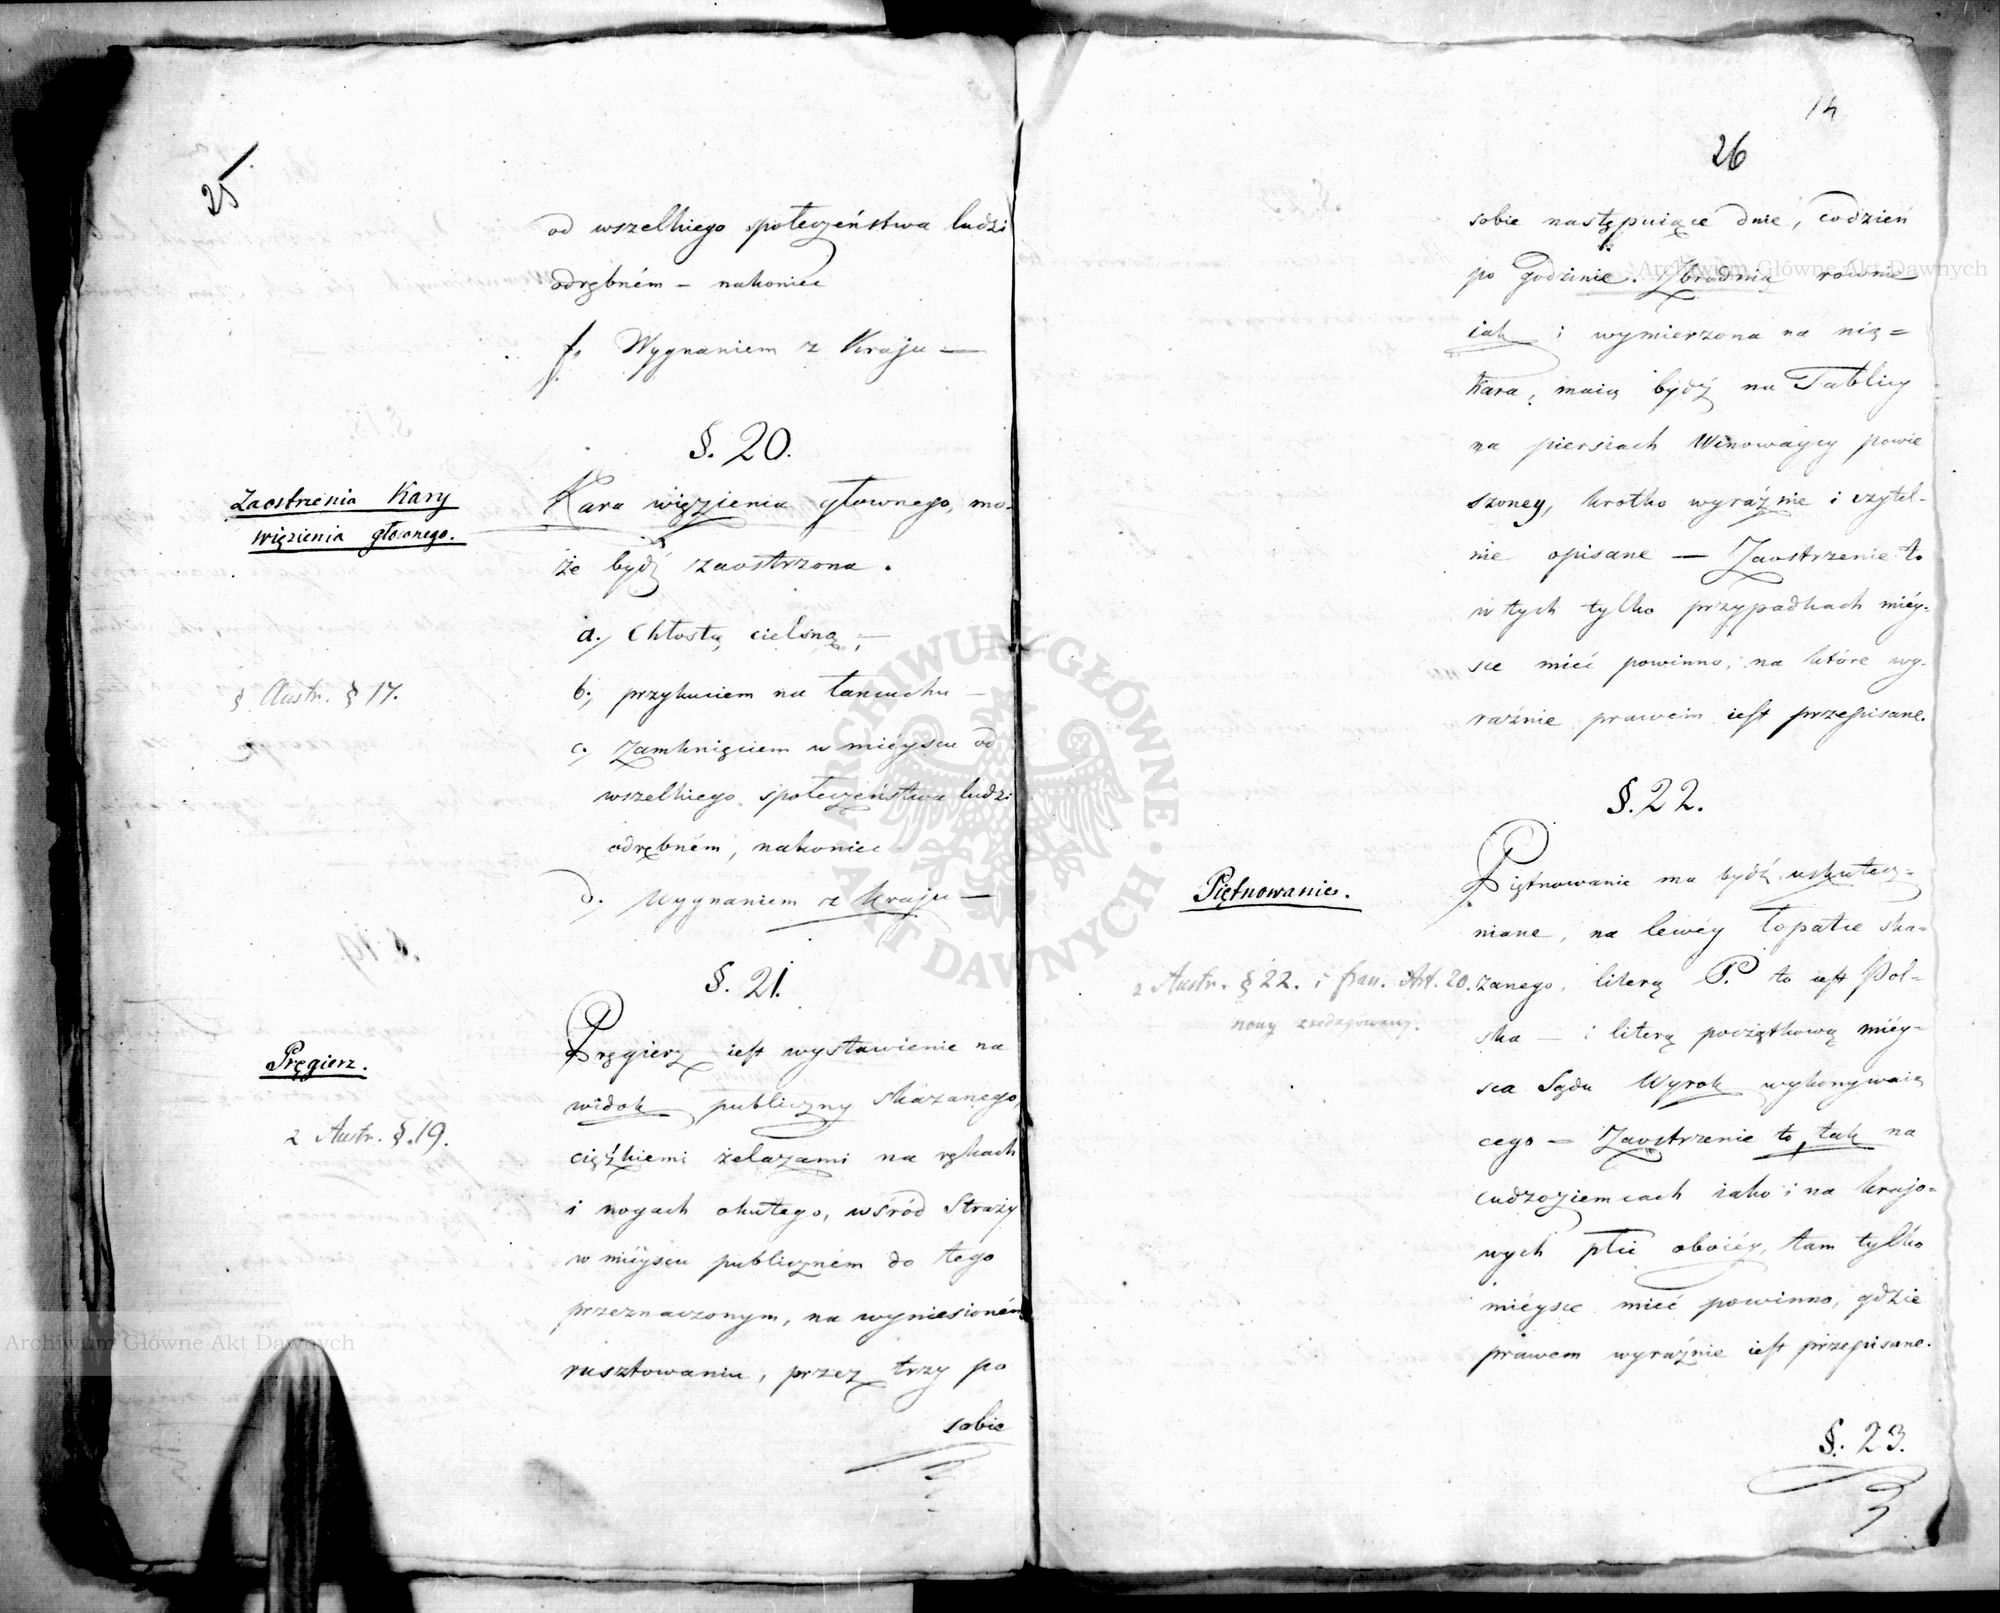 25
od wszelkiego społeczeństwa ludzi
odrębném — nakoniec
f. Wygnaniem z Kraju —
§. 20.
Zaostrzenia Kary
więzienia głownego.
Kara więzienia głownego, mo-
że bydź zaostrzona.
a./ Chłostą cielsną, —
§ Austr. § 17.
b./ przykuciem na łancuchu —
c./ Zamknięciem w miéyscu od
wszelkiego społeczeństwa ludzi
odrębném, nakoniec
d./ Wygnaniem z Kraju —
§. 21.
Pręgierz.
z Austr. §. 19.
Pręgierz iest wystawienie na
widok publiczny skazanego,
ciężkiemi żelazami na rękach
i nogach okutego, wśród Straży
w miéyscu publiczném do tego
przeznaczonym, na wyniesioném
rusztowaniu, przez trzy po
sobie
14
26
sobie następuiące dnie, codzień
po godzinie. Zbrodnia rownie
iak i wymierzona na nią =
Kara, maią bydź na Tablicy
na piersiach Winowaycy powie
szoney, krotko wyraźnie i czytel-
nie opisane — Zaostrzenie to
w tych tylko przypadkach miéy-
sce mieć powinno, na które wy-
raźnie prawem iest przepisane.
§. 22.
Piętnowanie.
z Austr. § 22. i fran. Art. 20.
nowy zredagowany.
Piętnowanie ma bydź uskutecz-
niane, na lewéy łopatce ska-
zanego, literą P. to iest Pol-
ska — i literą początkową miéy-
sca Sądu Wyrok wykonywaią
cego — Zaostrzenie to, tak na
cudzoziemcach iako i na krajo-
wych płci oboiéy, tam tylko
miéysce mieć powinno, gdzie
prawem wyraźnie iest przepisane.
§. 23.
Archiwum Główne Akt Dawnych
Archiwum Główne Akt Dawnych
ARCHIWUM GŁÓWNE AKT DAWNYCH